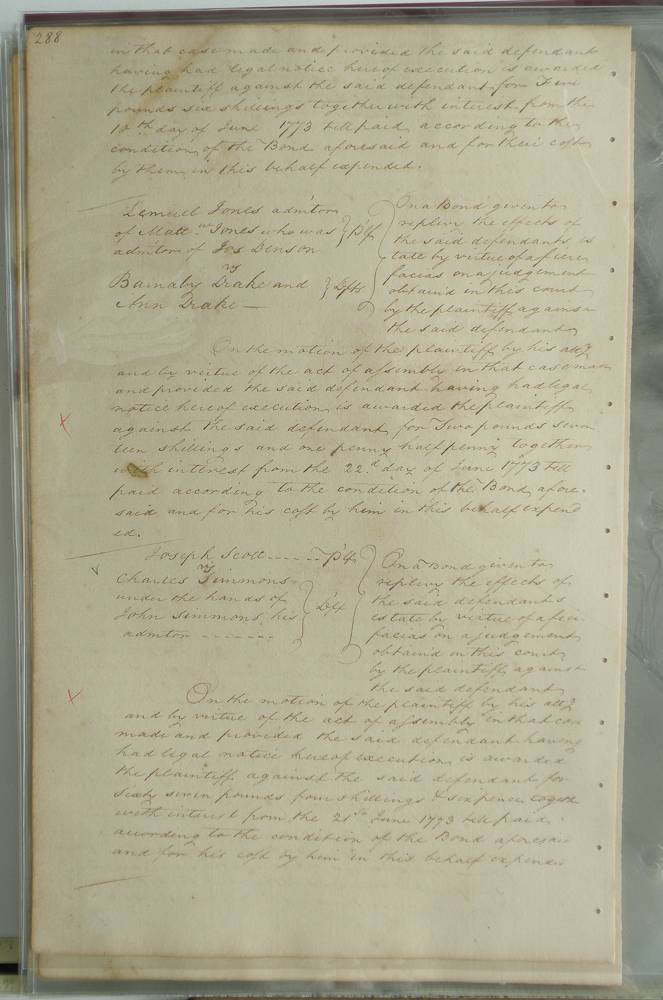 288
in that case made and provided the said defendants
having had legal notice hereof execution is awarded
the plaintiff against the said defendant for Five
pounds six shillings together with interest from the
10th day of June 1773 till paid according to the
condition of the Bond aforesaid and for their cost
by them in this behalf expended.
Lemuell Jones admtor
of Matt.w Jones who was } Plf
admtor of Jos Denson
vs
Barnaby Drake and } Dfts
Ann Drake —
On a Bond given to
replevy the effects of
the said defendants es
tate by virtue of a fieri
facias on a judgement
obtain'd in this court
by the plaintiff against
the said defendant
On the motion of the plaintiff by his atty
and by virtue of the act of assembly in that case made
and provided the said defendant having had legal
notice hereof execution is awarded the plaintiff
against the said defendant for Two pounds seven
teen shillings and one penny half penny together
with interest from the 22.d day of June 1773 till
paid according to the condition of the Bond afore-
said and for his cost by him in this behalf expend
ed.
Joseph Scott ------ Plf
vs
Charles Simmons
under the hands of } Df
John Simmons, his
admtor -------
On a Bond given to
replevy the effects of
the said defendants
estate by virtue of a fieri
facias on a judgement
obtain'd in this court
by the plaintiff against
the said defendant
On the motion of the plaintiff by his atty
and by virtue of the act of assembly in that case
made and provided the said defendant having
had legal notice hereof execution is awarded
the plaintiff against the said defendant for
Sixty seven pounds four shillings & sixpence togeth
with interest from the 21st June 1773 till paid
according to the condition of the Bond aforesaid
and for his cost by him in this behalf expended